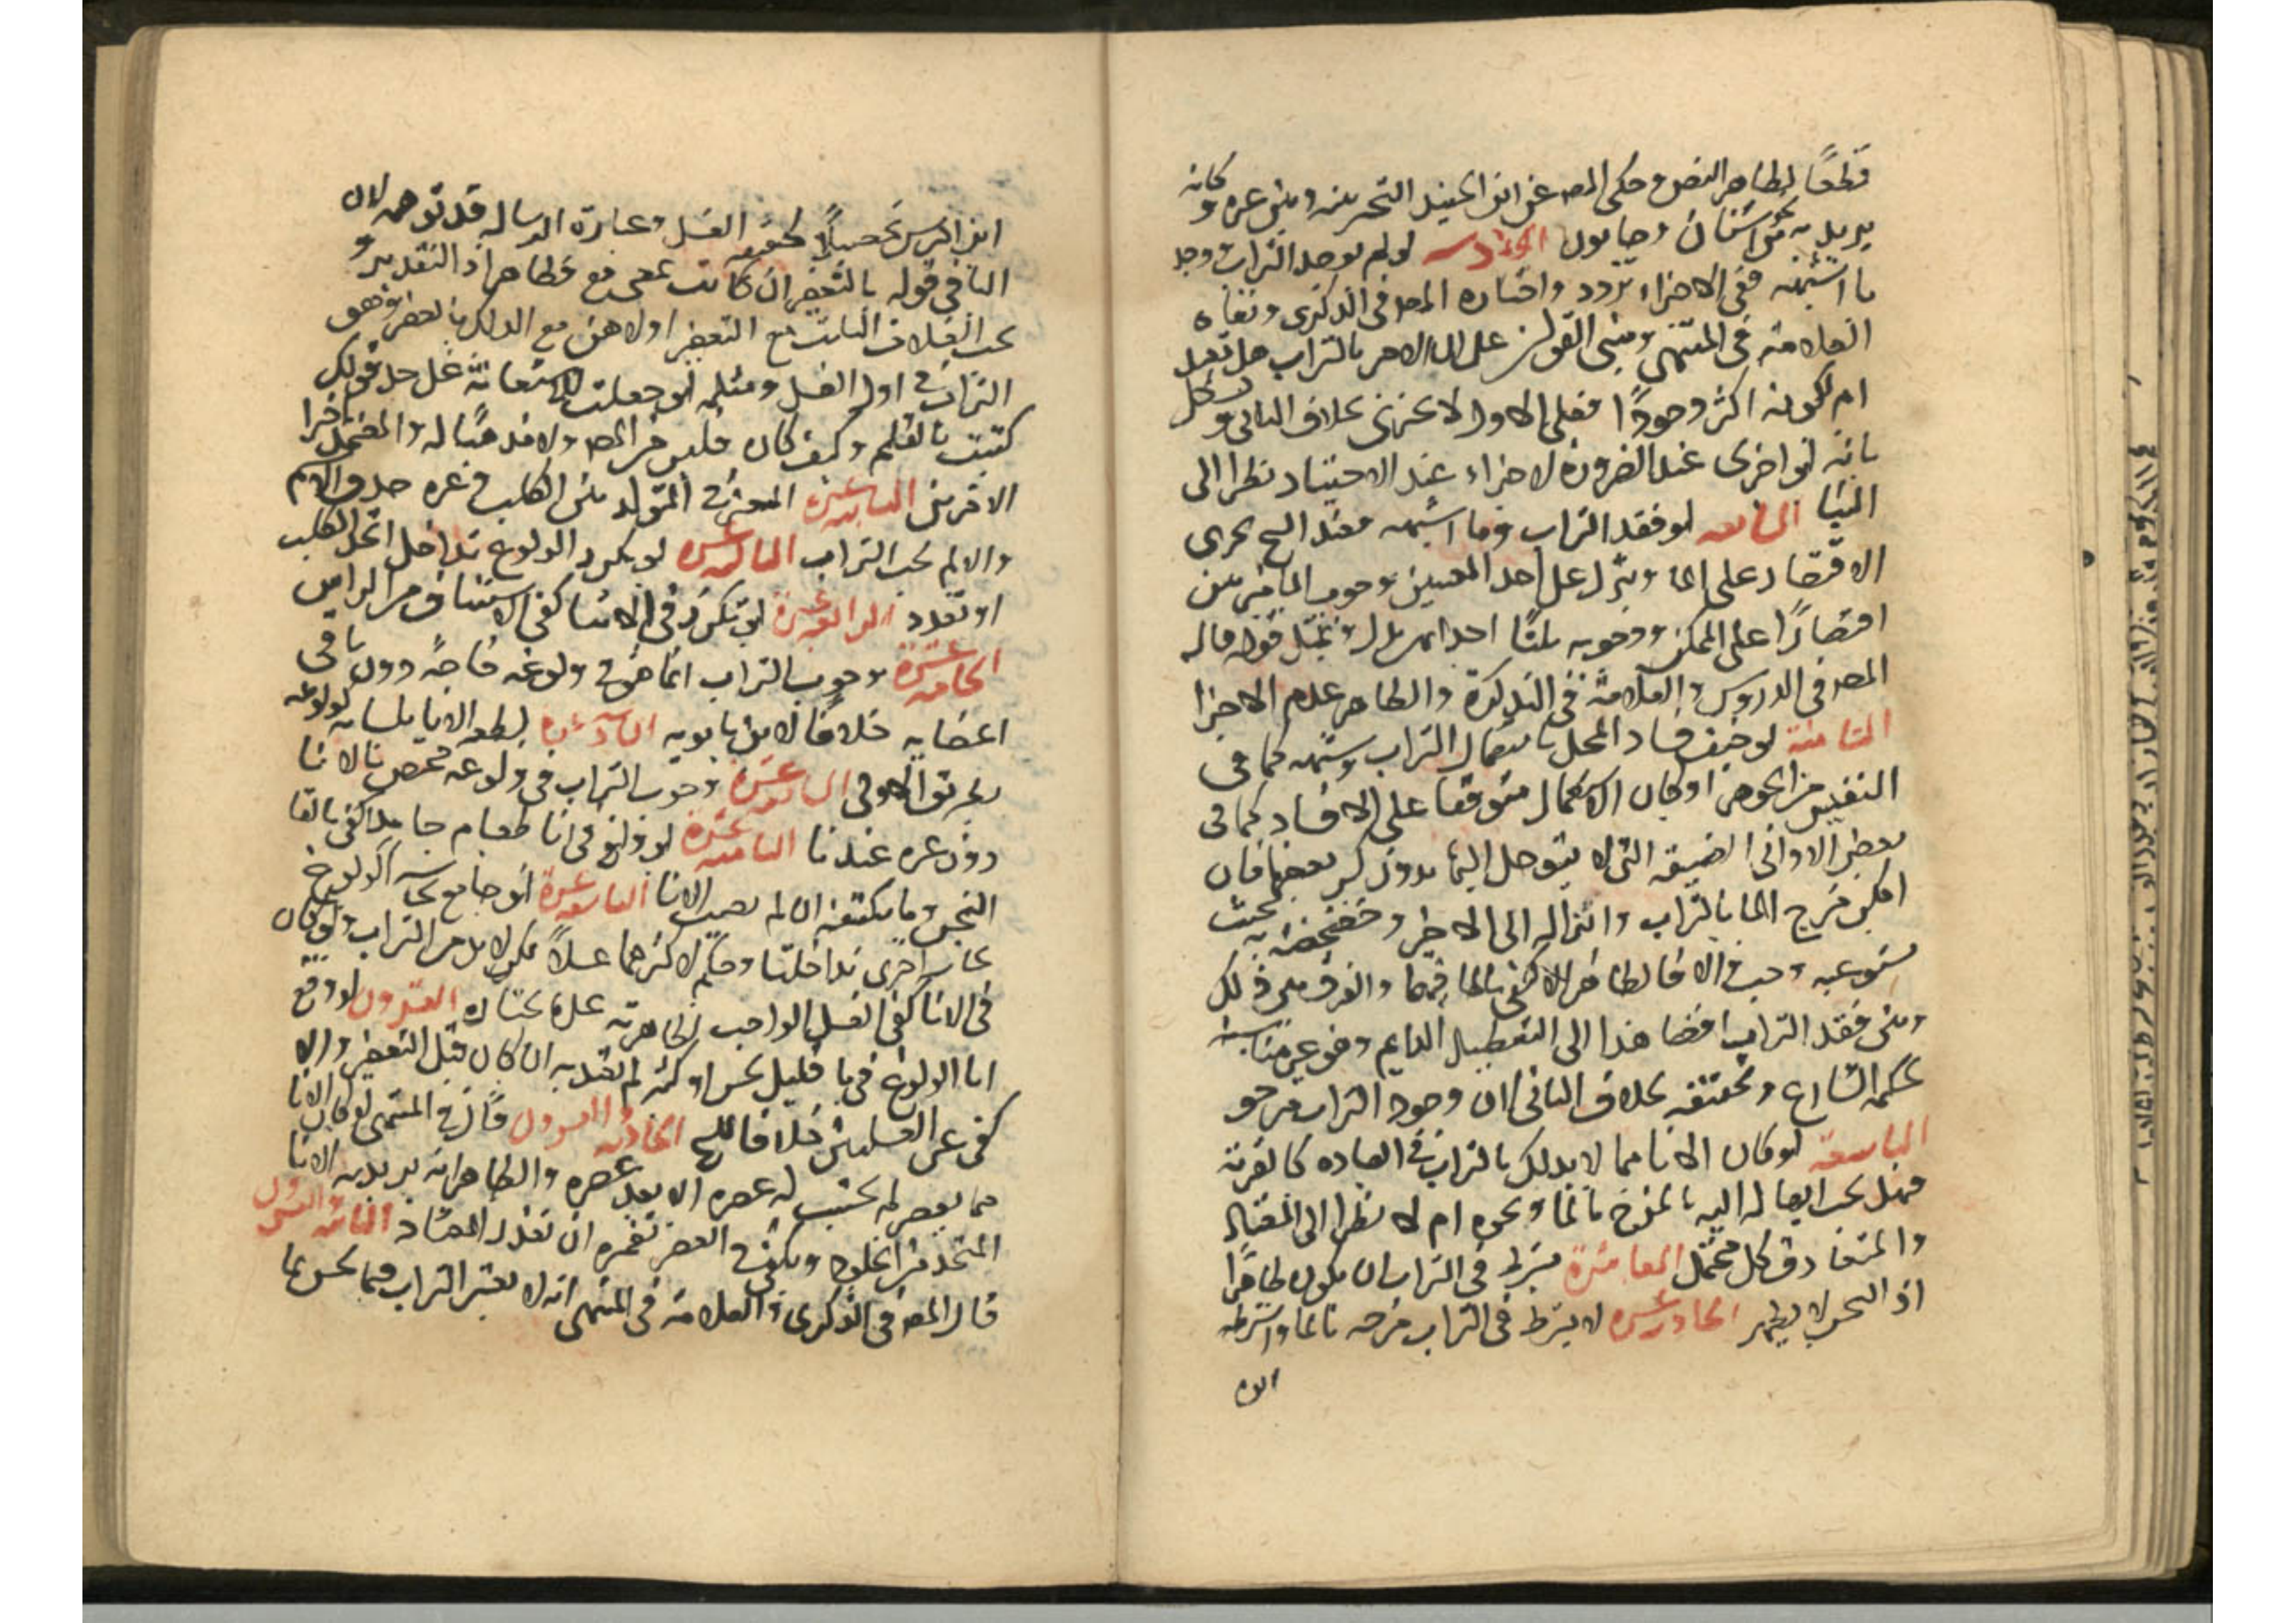 قطعًا لظاهر النص وحكى المص عن ابن الجنيد التخير بينه وبين غيره وكانه
يريد به نحو اشنان وصابون السادسه لو لم يوجد التراب ووجد
ما اشبهه ففي الاجزاء تردد واختاره المص في الذكرى ونفاه
العلامة في المنتهى ومبنى القولين على ان الامر بالتراب هل تعبد
ام لكونه اكثر وجودًا فعلى الاول لا يجزى بخلاف الثاني ويشكل
بانه لو اجزى عند الضرورة لاجزاء عند الاختيار نظرا الى
السابعه لو فقد التراب وما اشبهه فعند الشيخ يجزى
الاقتصار على الما وينزل على احد المعنيين وجوب الما مرتين
اقتصارًا على الممكن ووجوبه ثلثًا احداهن بدل وبمثل قوله قال
المص في الدروس والعلامة في التذكرة والظاهر عدم الاجزا
الثامنة لو خيف فساد المحل باستعمال التراب وشبهه كما في
النفيس من الجوهر او كان الاستعمال متوقفا على الافساد كما في
بعض الاوانى الضيقه التى لا يتوصل اليها بدون كسر بعضها فان
امكن مزج الما بالتراب وانزاله الى الاخر وخضخضته به بحيث
يستوعبه وجب والا فالظاهر الاكتفى بالما فيهما والفرق بين ذلك
وبين فقد التراب افضا هذا الى التعطيل الدايم وهو غير مناسب
لحكمه الشارع وتخفيفه بخلاف الثاني لان وجود التراب مرجو
التاسعة لو كان الانا مما لا يدلك بالتراب في العاده كالقربة
فهل يجب ايصاله اليه بالمزج بالما ونحوه ام لا نظرا الى المعتاد
والمتعارف كل محتمل العاشرة يشترط في التراب ان يكون طاهرًا
اذ النجس لا يطهر الحادية عشره لا يشترط في التراب مزجه بالما واشترطه
ابن ادريس تحصيلًا لحقيقة الغسل وعبارة الرساله قد توهمه لان
البا في قوله بالتعفير ان كانت بمعنى مع فظاهر اذ التقدير
يجب الغسلات الثلث مع التعفير اولاهن مع الدلك بالعفر وهو
التراب في اول الغسل ومثله لو جعلت للاستعانة على حد قولك
كتبت بالقلم وكيف كان فليس من المص ولا قد
الثانية عشرة المعتبر في المتولد من الكلب وغيره صدق الاسم
والا لم يجب التراب الثالثة عشره لو تكرر الولوغ تداخل اتحد الكلب
او تعدد الرابعة عشرة لو تكرر في الاثنا كفى الاستيناف من الراس
الخامسة عشرة وجوب التراب انما هو في ولوغه خاصة دون باقى
اعضايه خلافًا لابن بابويه السادسة عشرة لطعه الانا بلسانه كولوغه
بطريق الاولى السابعة عشرة وجوب التراب في ولوغه مختص بالانا
دون غيره عندنا الثامنة عشرة لو ولغ في انا طعام جامد اكتفى بالقا
النجس وما يكتنفه ان لم يصب الانا التاسعة عشرة لو جامع نجاسه الولوغ
نجاسة اخرى تداخلتا وحكم لاكثرهما غسلًا لكن لا بد من التراب ولو كان
في الانا كفى الغسل الواجب لطاهريته على المختار العشرون لو وقع
انا الولوغ في ما قليل نجس او كثير لم تعتد به ان كان قبل التعفير والا
كفى عن الغسلتين خلافا للشيخ الحادية والعشرون قال في المنتهى لو كان الانا
مما يعصر لم يحتسب له غسله الا بعد عصره والظاهر انه يريد به الانا
المتخذ من الجلود ويكفى في العصر تغميزه ان تعذر المعتاد الثانية والعشرون
قال المص في الذكرى والعلامة في المنتهى انه لا يعتبر التراب فيما نجس بما